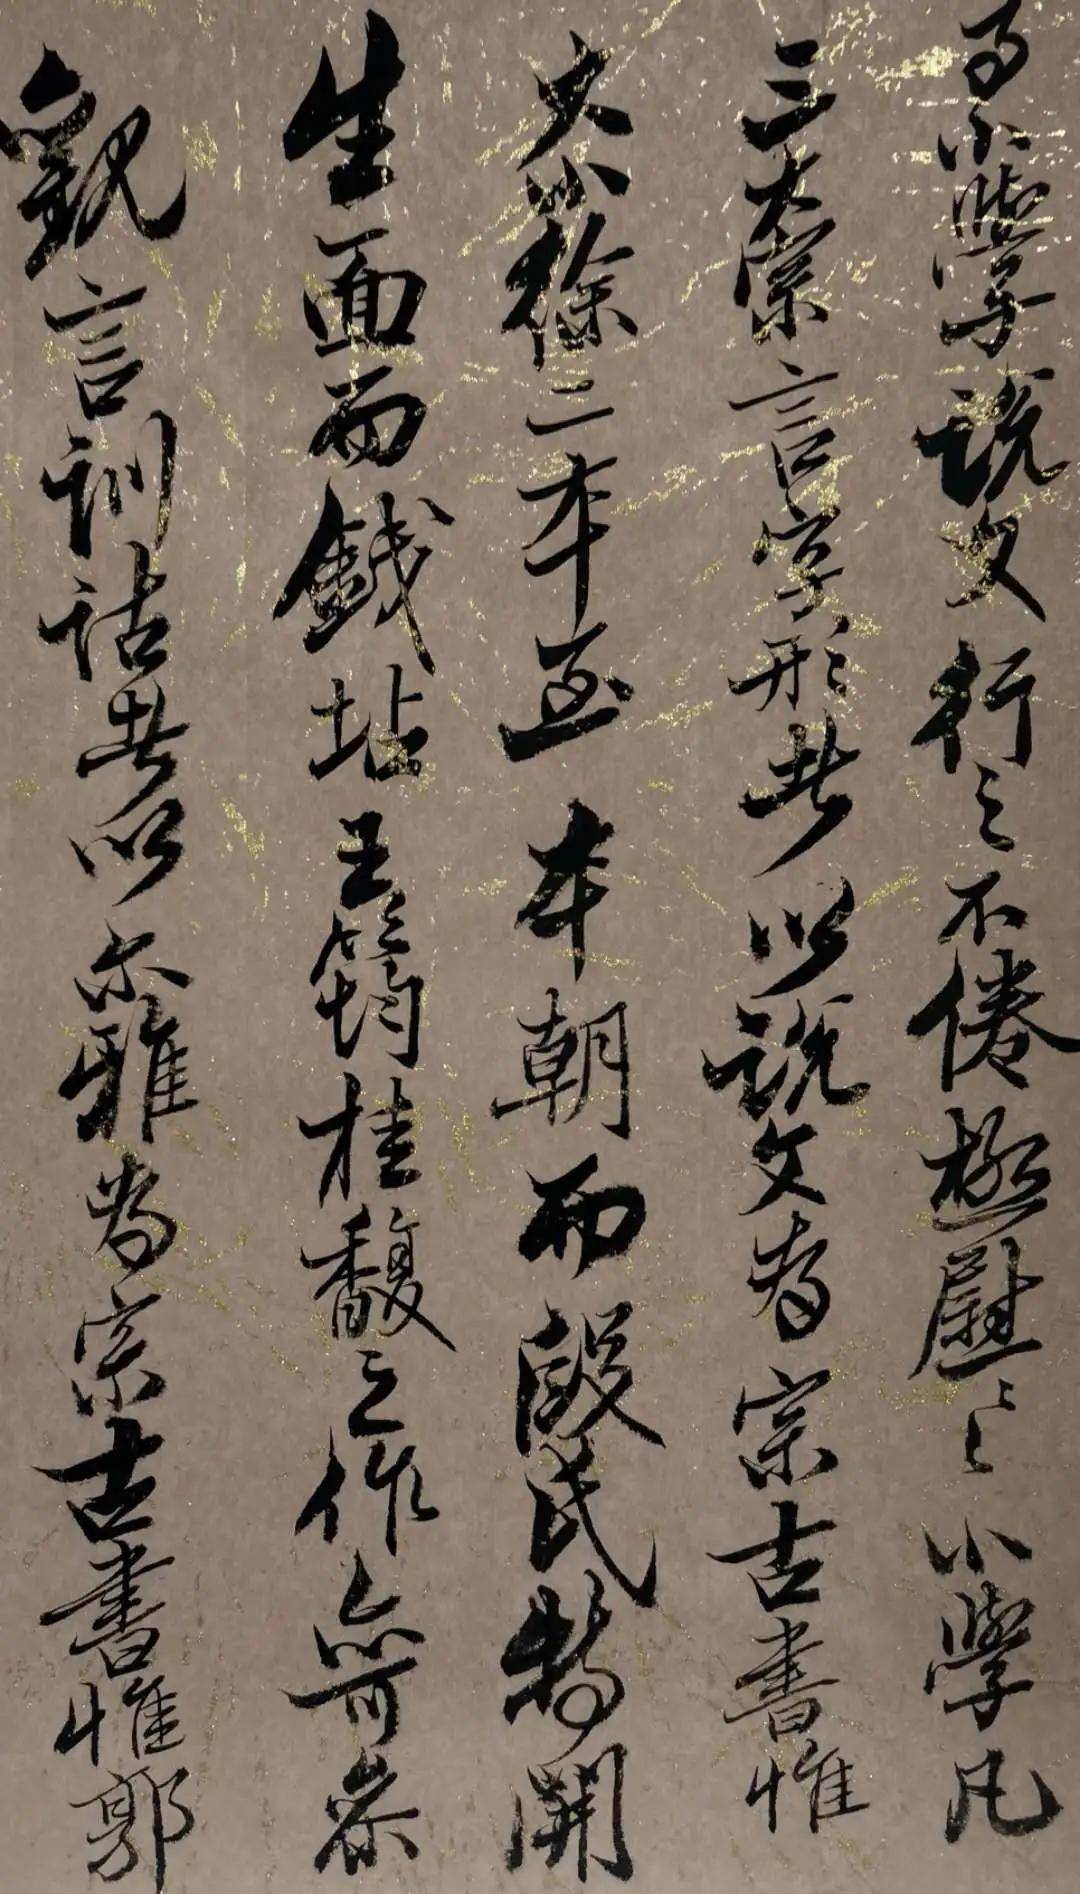 子小學說文行之不倦極慰〻小學凡
三大宗言字形者以說文爲宗古書惟
大小徐二本至本朝而段氏特開
生面而錢坫王筠桂馥之作亦可參
觀言訓詁者以尔雅爲宗古書惟郭